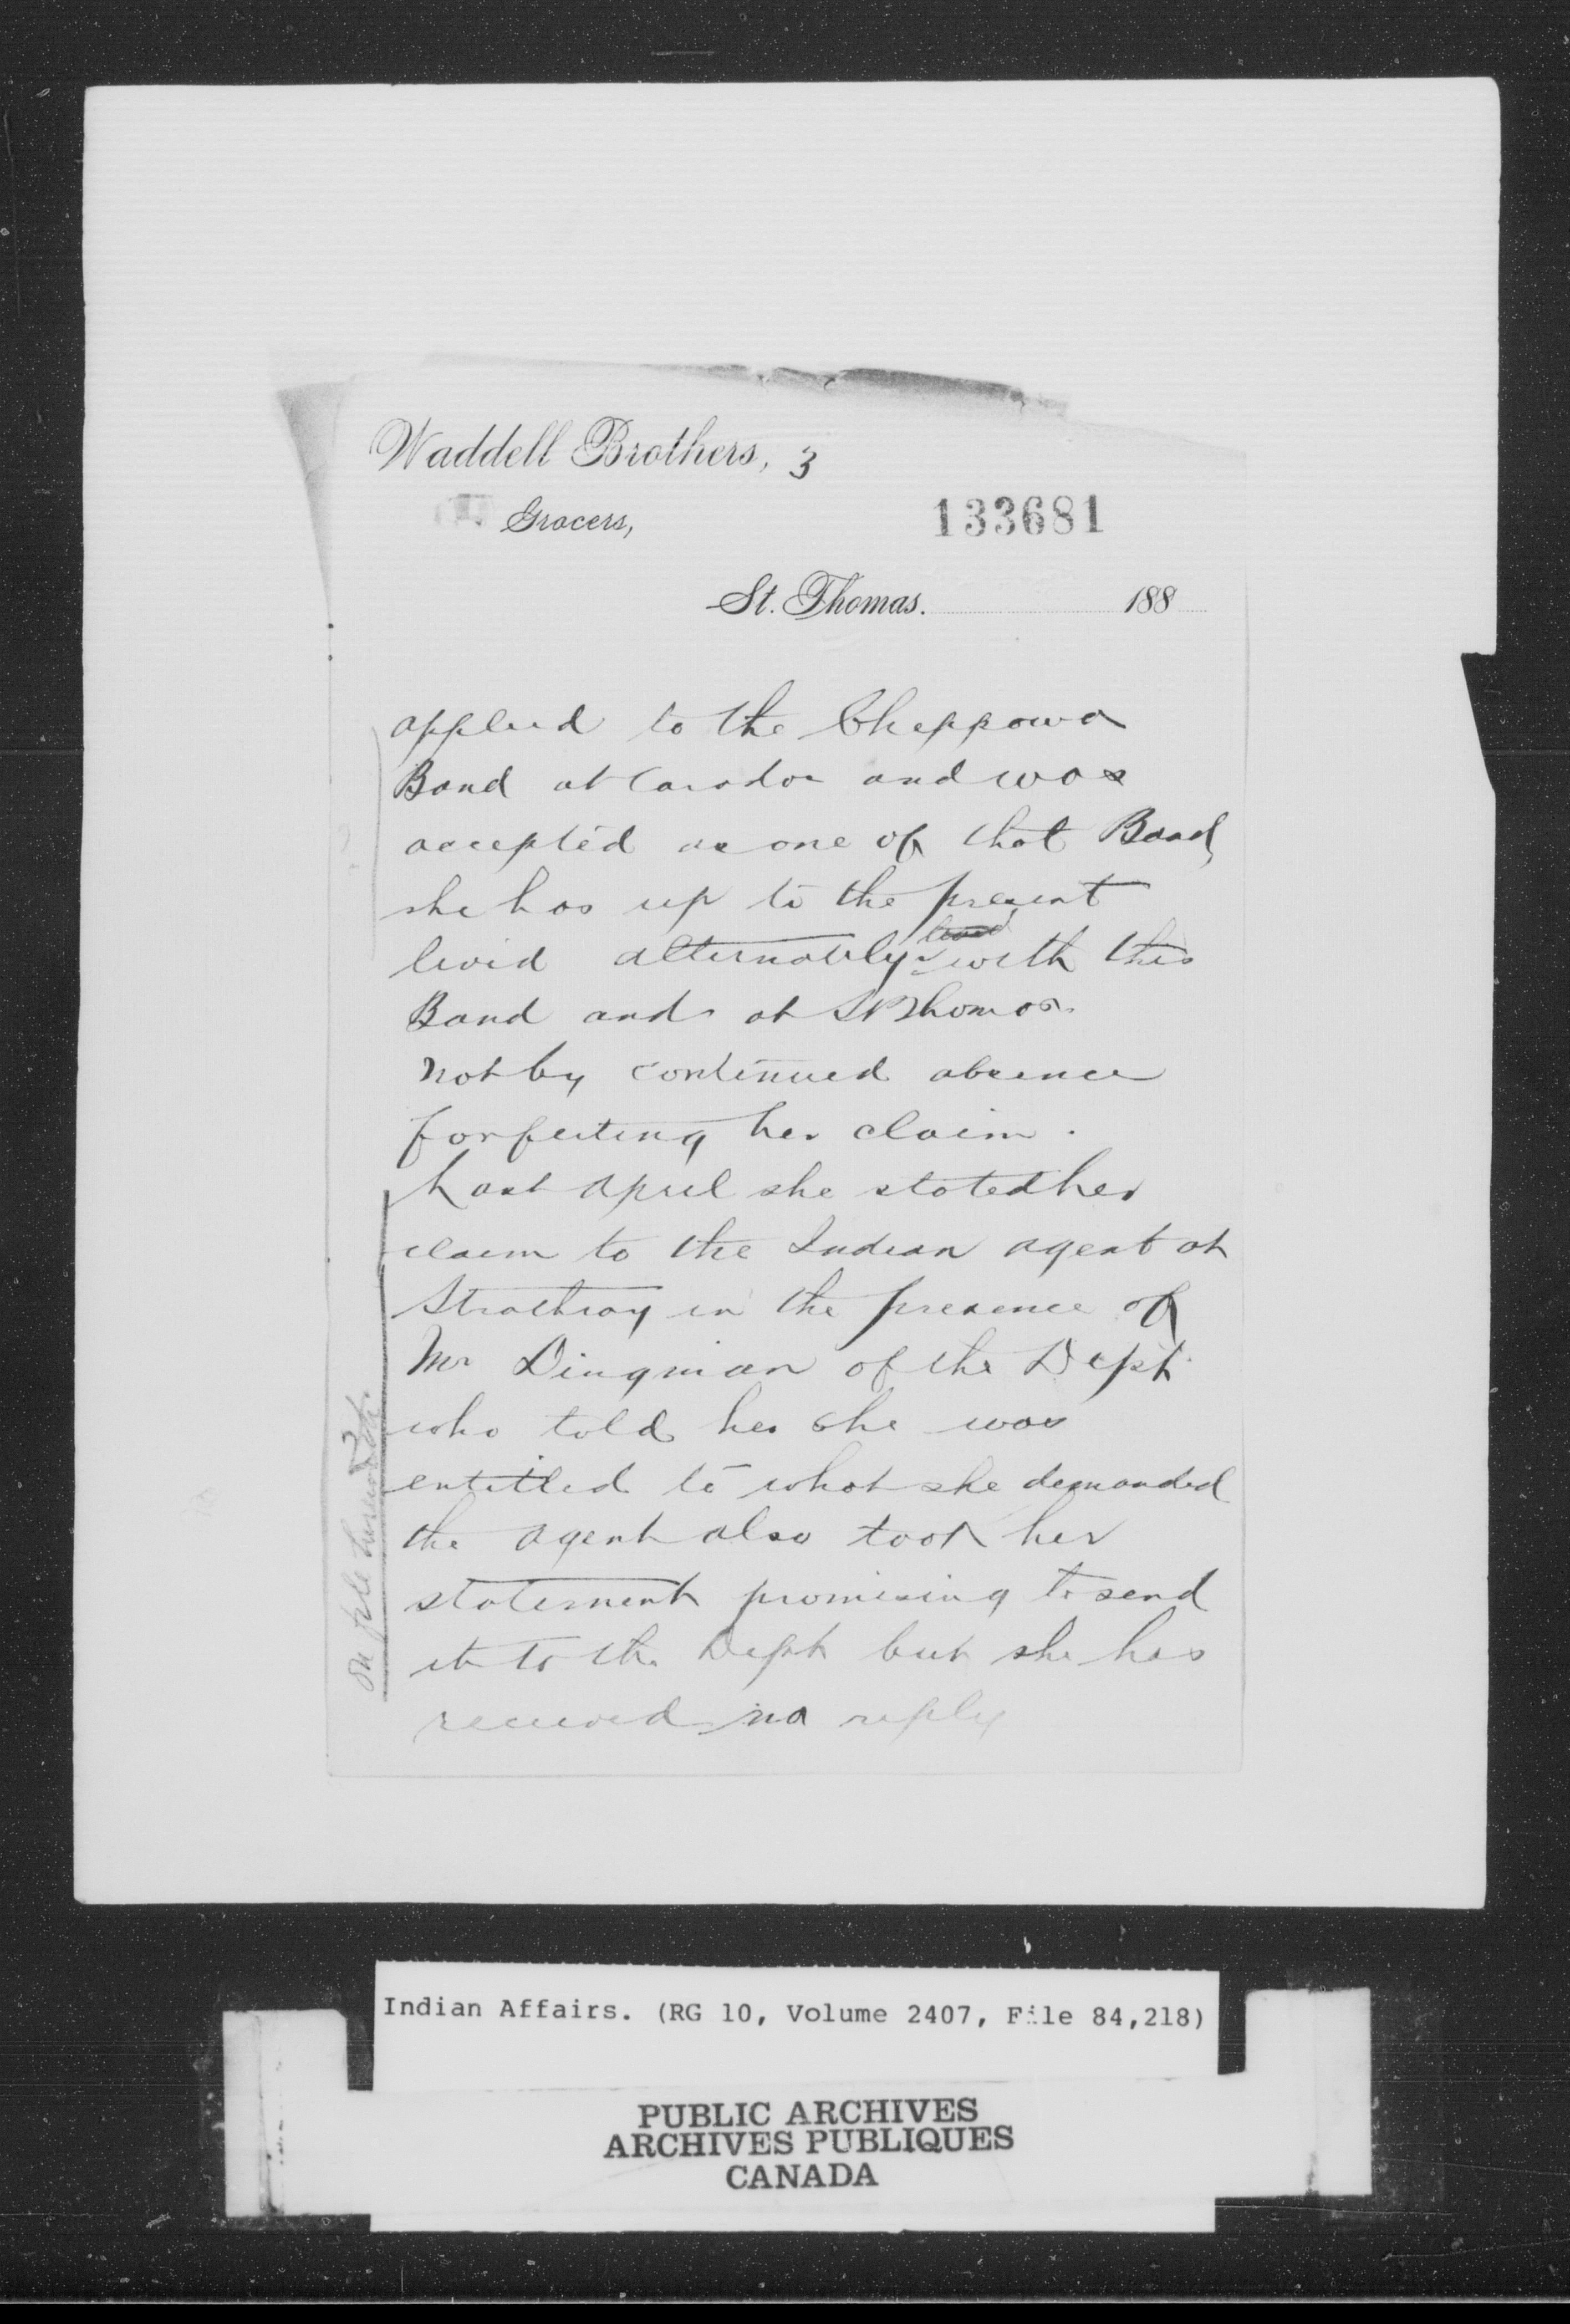 Waddell Brothers, 3
Grocers,
133681
St. Thomas. 188
applied to the Chippowa
Band at Caradoc and was
accepted as one of that Band,
she has up to the present
lived
livid alternately with this
Band and at St Thomas.
not by continued absence
forfeiting her claim.
Last April she stated her
claim to the Indian agent at
Strathroy in the presence of
Mr Dingman of the Dept.
who told her she was
entitled to what she demanded
the agent also took her
statement promising to send
it to the Dept but she has
received no reply
on file herewith
Indian Affairs. (RG 10, Volume 2407, File 84,218)
PUBLIC ARCHIVES
ARCHIVES PUBLIQUES
CANADA